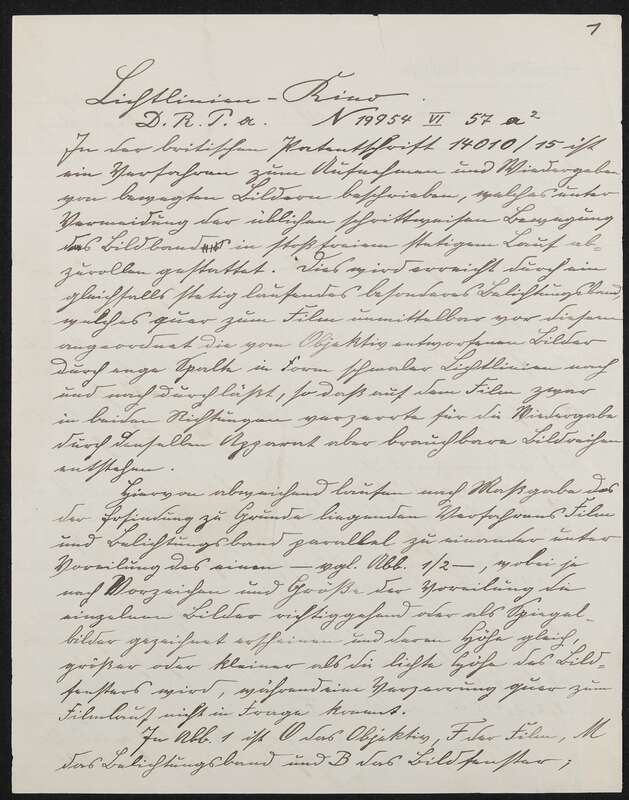 1
Lichtlinien-Kino.
D. R. P. a. N 19954 VI 57 a²
In der britischen Patentschrift 14010/15 ist
ein Verfahren zum Aufnehmen und Wiedergeben
von bewegten Bildern beschrieben, welches unter
Vermeidung der üblichen schrittweisen Bewegung
das Bildband in stoßfreiem stetigem Lauf ab-
zurollen gestattet. Dies wird erreicht durch ein
gleichfalls stetig laufendes besonderes Belichtungsband
welches quer zum Film unmittelbar vor diesem
angeordnet die vom Objektiv entworfenen Bilder
durch enge Spalte in Form schmaler Lichtlinien nach
und nach durch läßt, so daß auf dem Film zwar
in beiden Richtungen verzerrte für die Wiedergabe
durch denselben Apparat aber brauchbare Bildreihen
entstehen.
Hiervon abweichend laufen nach Maßgabe des
der Erfindung zu Grunde liegenden Verfahrens Film
und Belichtungsband parallel zu einander unter
Voreilung des einen – vgl. Abb. 1/2 –, wobei je
nach Vorzeichen und Größe der Voreilung die
einzelnen Bilder richtiggehend oder als Spiegel-
bilder gezeichnet erscheinen und deren Höhe gleich,
größer oder kleiner als die lichte Höhe des Bild-
fensters wird, während eine Verzerrung quer zum
Filmlauf nicht in Frage kommt.
In Abb. 1 ist O das Objektiv, F der Film, M
das Belichtungsband und B das Bildfenster;